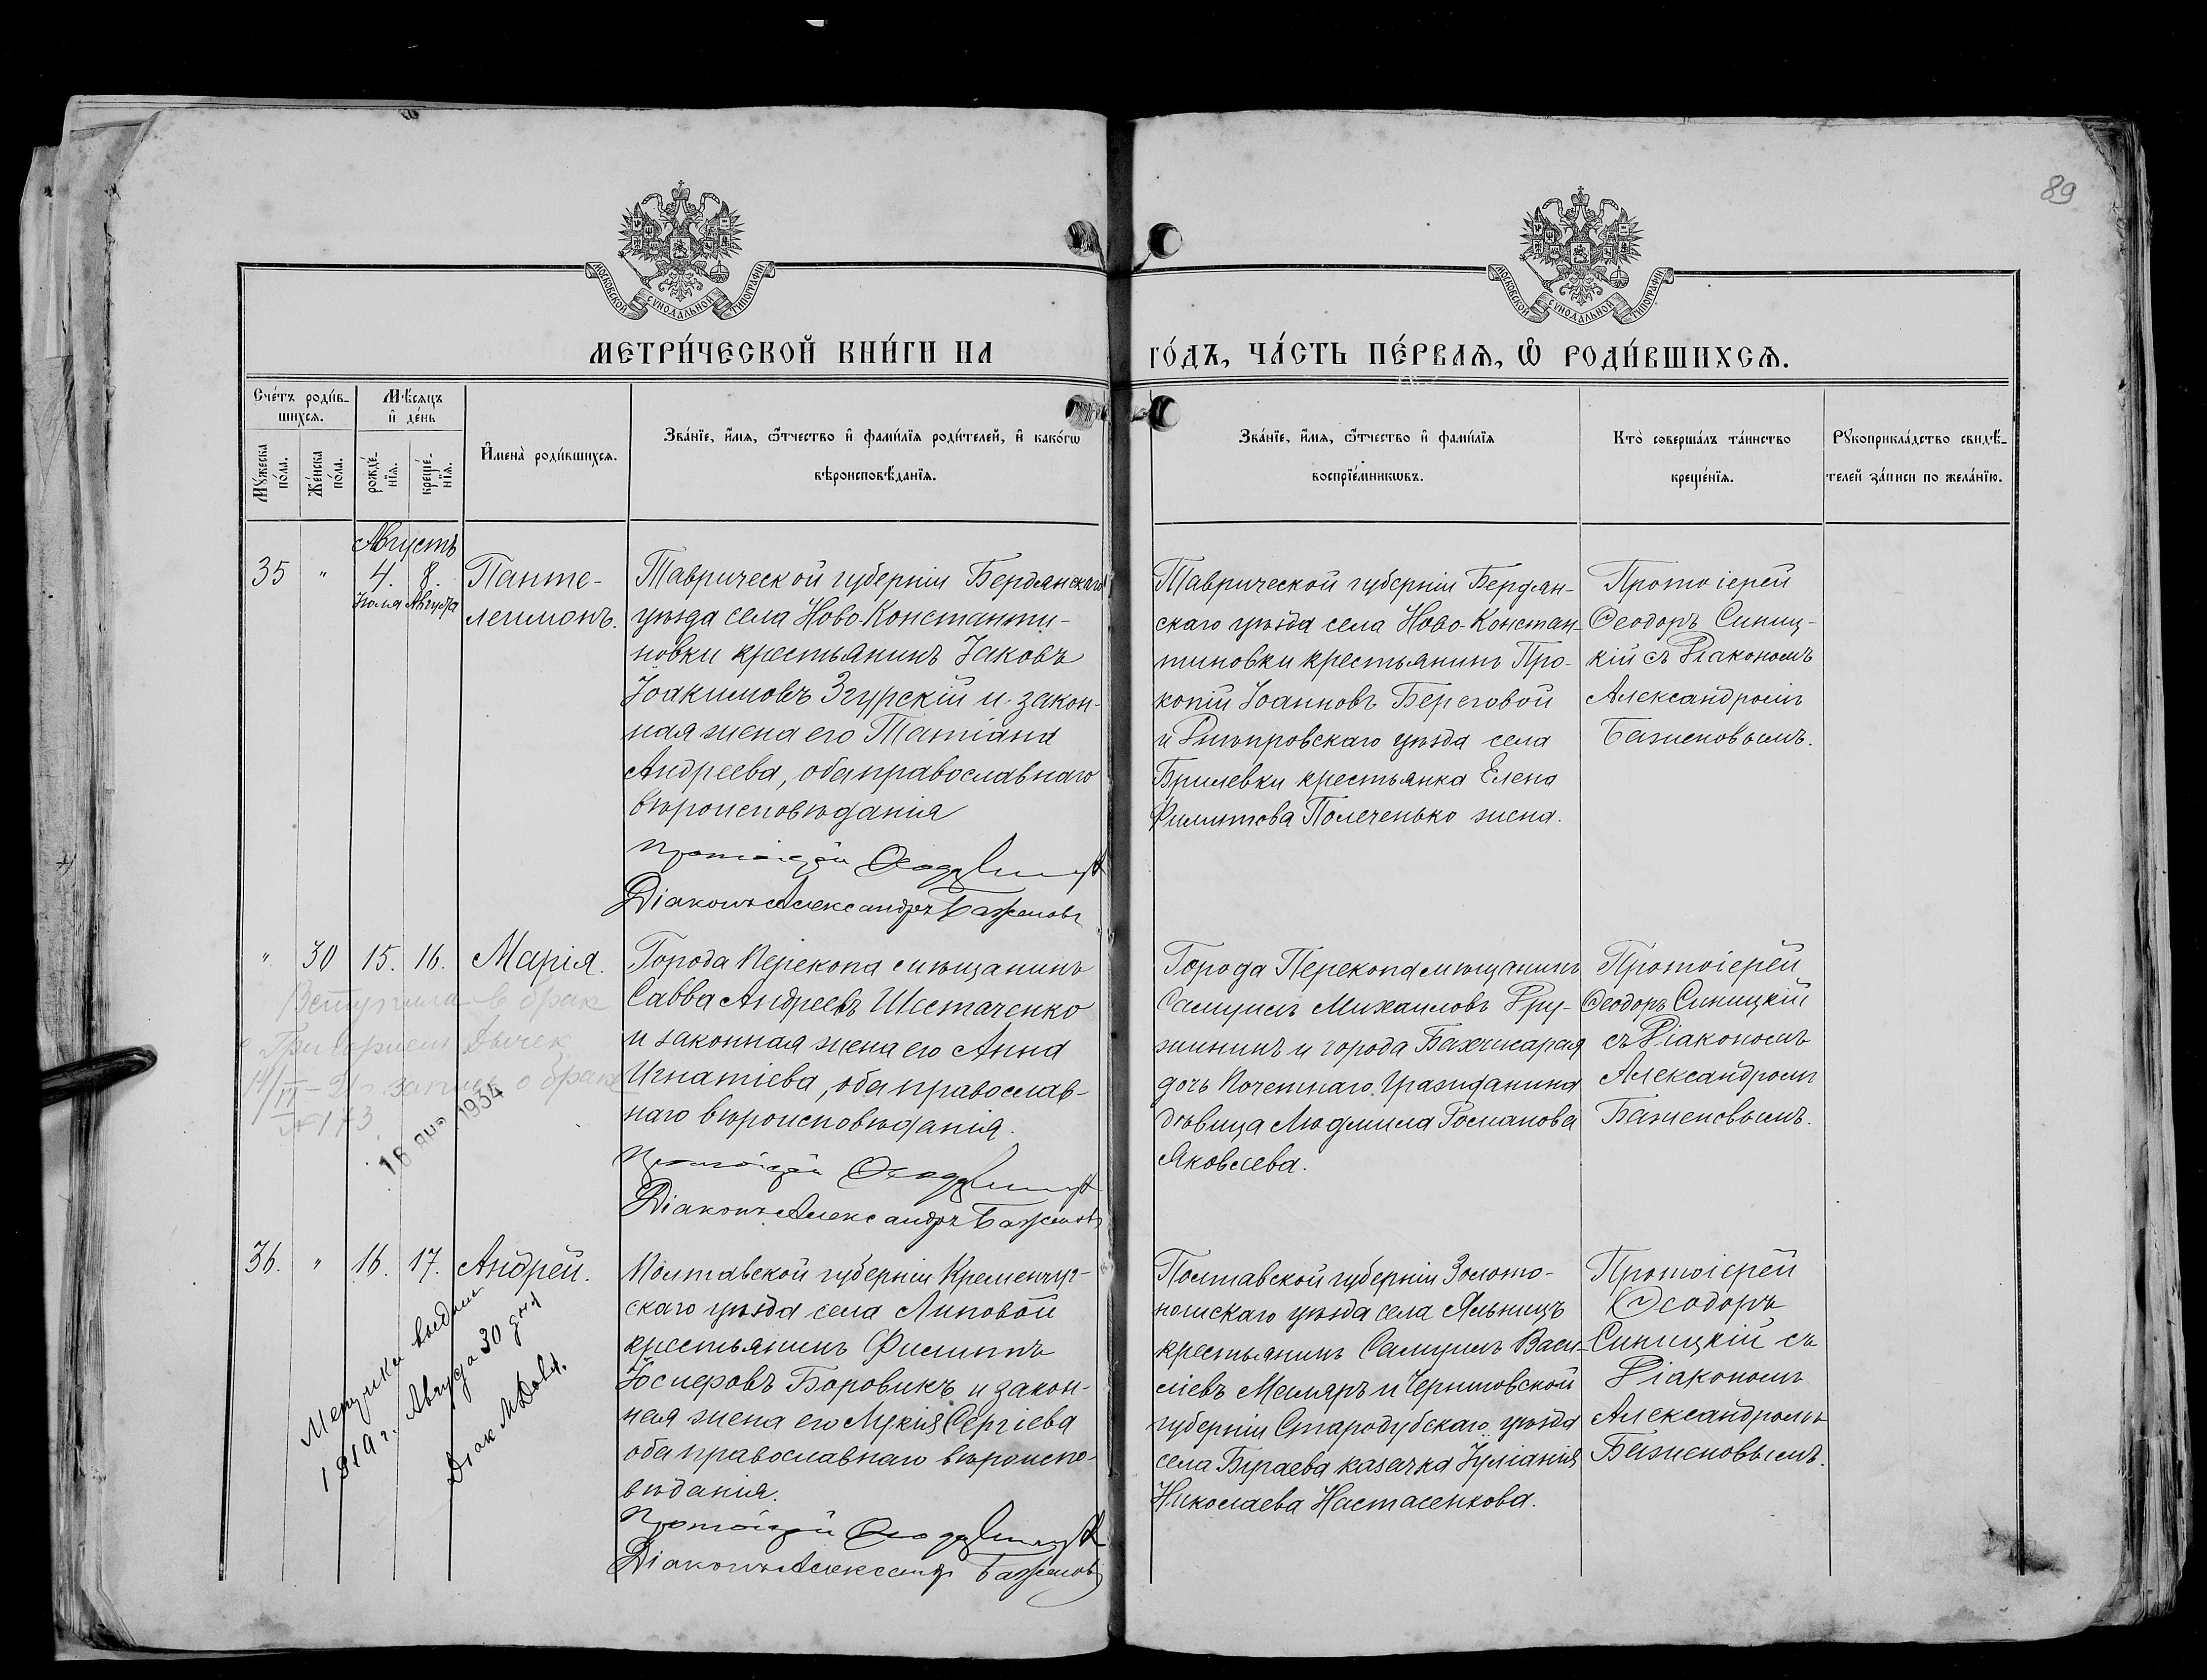 89
МОСКОВСКОЙ СУНОДАЛЬНОЙ ТИПОГРАФІИ
МОСКОВСКОЙ СУНОДАЛЬНОЙ ТИПОГРАФІИ
МЕТРИ́ЧЕСКОЙ КНИ́ГИ НА
ГО́ДЪ, ЧА́СТЬ ПЕ́РВАѦ, Ѡ РОДИ́ВШИХСѦ.
Сче́тъ роди́в-
шихсѧ.
Мꙋ́жеска
по́ла.
Же́нска
по́ла.
Мѣ́сѧцъ
и҆ де́нь
рожде́-
нїѧ.
креще́-
нїѧ.
И҆мена̀ роди́вшихсѧ.
Зва́нїе, и҆́мѧ, ѻ҆́тчество и҆ фами́лїѧ роди́телей, и҆ како́гѡ
вѣроисповѣ́данїѧ.
Зва́нїе, и҆́мѧ, ѻ҆́тчество и҆ фами́лїѧ
воспрїе́мникѡвъ.
Кто̀ соверша́лъ та́инство
креще́нїѧ.
Рꙋкоприкла́дство свидѣ́-
телей за́писи по жела́нїю.
Августъ
35 " 4. 8. Панте-
Іюля Августа
леимонъ.
Таврической губерніи Бердянскаго
уѣзда села Ново-Константи-
новки крестьянинъ Іаковъ
Іоакимовъ Згурскій и закон-
ная жена его Татіана
Андреева, оба православнаго
вѣроисповѣданія
Протоіерей Ѳеодоръ
Діаконъ Александръ Баженовъ
Таврической губерніи Бердян-
скаго уѣзда села Ново-Констан-
тиновки крестьянинъ Про-
копій Іоанновъ Береговой
и Днѣпровскаго уѣзда села
Брилевки крестьянка Елена
Филиппова жена.
Протоіерей
Ѳеодоръ Синиц-
кій съ Діакономъ
Александромъ
Баженовымъ.
" 30 15. 16. Марія.
Вступила в брак
с Григорием
запись о браке
№ 173
16 1934
Города Перекопа мѣщанинъ
Савва Андреевъ Шестаченко
и законная жена его Анна
Игнатіева, оба православ-
наго вѣроисповѣданія.
Протоіерей Ѳеодоръ
Діаконъ Александръ Баженовъ
Города Перекопа мѣщанинъ
Самуилъ Михаиловъ Дру-
жининъ и города Бахчисарая
дочь Почетнаго Гражданина
дѣвица Людмила Романова
Яковлева.
Протоіерей
Ѳеодоръ Синицкій
съ Діакономъ
Александромъ
Баженовымъ.
36. " 16. 17. Андрей.
Метрика выдана
1919 г. Августа 30 дня
Діак.
Полтавской губерніи Кременчуг-
скаго уѣзда села Липовой
крестьянинъ Филиппъ
Іосифовъ Боровикъ и закон-
ная жена его Лукія Сергіева
оба православнаго вѣроиспо-
вѣданія.
Протоіерей Ѳеодоръ
Діаконъ Александръ Баженовъ
Полтавской губерніи Золото-
ношскаго уѣзда села
крестьянинъ Самуилъ Васи-
ліевъ Маляръ и Черниговской
губерніи Стародубскаго уѣзда
села казачка Іуліанія
Николаева Настасенкова.
Протоіерей
Ѳеодоръ
Синицкій съ
Діакономъ
Александромъ
Баженовымъ.